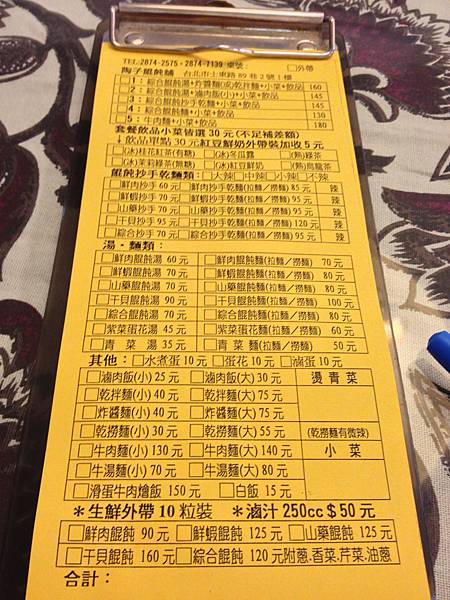 TEL:2874-2575・2874-7139 桌號: □外帶
陶子餛飩舖 台北市士東路89巷2號1樓
□1:綜合餛飩湯+炸醬麵(或)乾拌麵+小菜+飲品 160
□2:綜合餛飩湯+滷肉飯(小)+小菜+飲品 145
□3:綜合餛飩抄手乾麵+小菜+飲品 145
□4:綜合餛飩湯麵+小菜+飲品 130
□5:牛肉麵+小菜+飲品 180
套餐飲品小菜皆選30元(不足補差額)
↓飲品單點30元紅豆鮮奶外帶裝加收5元
□(冰)桂花紅茶(有糖) □(冰)冬瓜露 □(熱)綠茶
□(冰)茉莉綠茶(無糖) □(冰)紅豆鮮奶 □(熱)烏龍茶
餛飩抄手乾麵類: □大辣□中辣□小辣 □不辣
□鮮肉抄手60元 □鮮肉抄手乾麵(拉麵/撈麵)85元 辣
□鮮蝦抄手70元 □鮮蝦抄手乾麵(拉麵/撈麵)95元 辣
□山藥抄手70元 □山藥抄手乾麵(拉麵/撈麵)95元 辣
□干貝抄手95元 □干貝抄手乾麵(拉麵/撈麵)120元 辣
□綜合抄手70元 □綜合抄手乾麵(拉麵/撈麵)95元 辣
湯・麵類:
□鮮肉餛飩湯 60元 □鮮肉餛飩麵(拉麵/撈麵) 70元
□鮮蝦餛飩湯 70元 □鮮蝦餛飩麵(拉麵/撈麵) 80元
□山藥餛飩湯 70元 □山藥餛飩麵(拉麵/撈麵) 80元
□干貝餛飩湯 90元 □干貝餛飩麵(拉麵/撈麵) 100元
□綜合餛飩湯 70元 □綜合餛飩麵(拉麵/撈麵) 80元
□紫菜蛋花湯 45元 □紫菜蛋花麵(拉麵/撈麵) 60元
□青菜湯 35元 □青菜麵(拉麵/撈麵) 50元
其他:□水煮蛋10元 □蛋花10元 □滷蛋10元
□滷肉飯(小)25元 □滷肉飯(大)30元 燙青菜
□乾拌麵(小)40元 □乾拌麵(大)75元
□炸醬麵(小)40元 □炸醬麵(大)75元
□乾撈麵(小)30元 □乾撈麵(大)55元 (乾撈麵有微辣)
□牛肉麵(小)130元 □牛肉麵(大)140元 小菜
□牛湯麵(小)70元 □牛湯麵(大)80元
□滑蛋牛肉燴飯 150元 □白飯 15元
＊生鮮外帶10粒裝 ＊滷汁250cc$50元
□鮮肉餛飩 90元 □鮮蝦餛飩 125元 □山藥餛飩 125元
□干貝餛飩 160元 □綜合餛飩 120元 附蔥.香菜.芹菜.油蔥
合計: